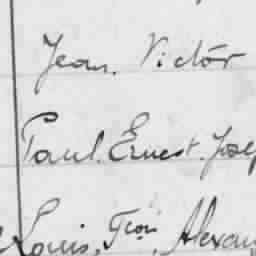 Jean. Victor
Paul. Ernest. Josep
Louis, Fçois, Alexan